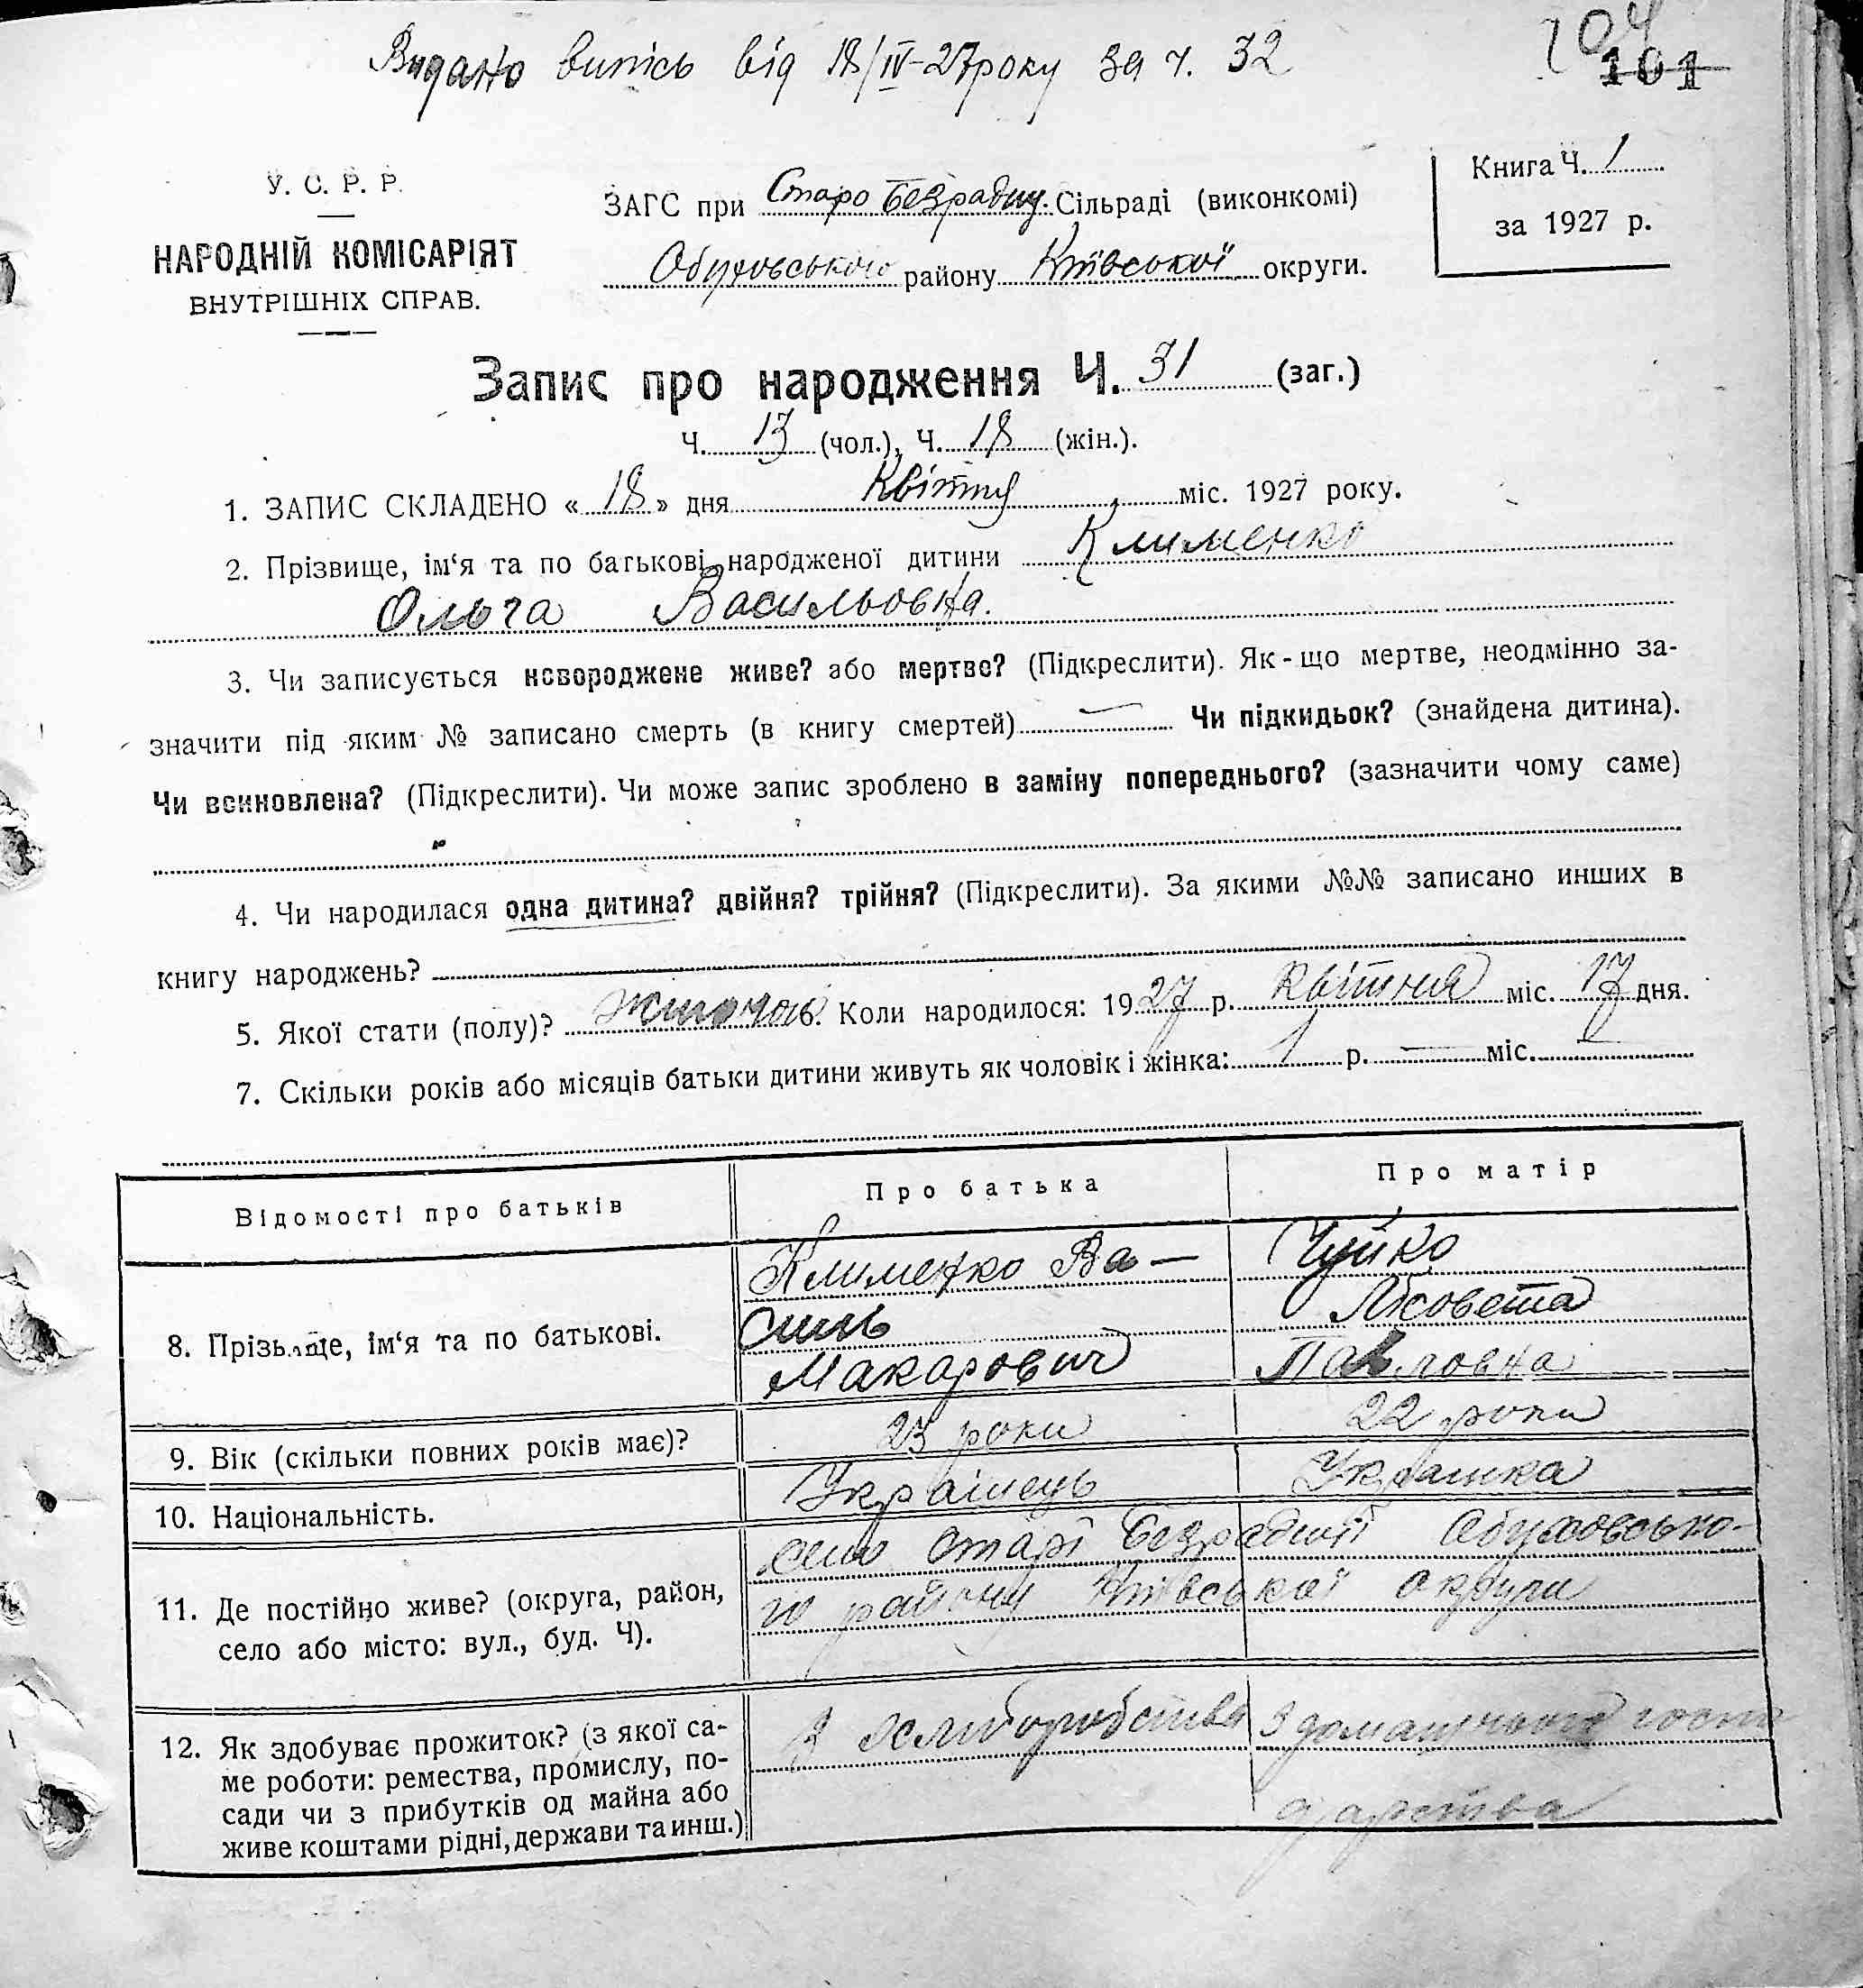 Видано випісь від 18/IV-27 року за ч. 32
104
101
У. С. Р. Р.
НАРОДНІЙ КОМІСАРІЯТ
ВНУТРІШНІХ СПРАВ.
ЗАГС при Старо Безрадич. Сільраді (виконкомі)
Обуховського району Київської округи.
Книга Ч. 1
за 1927 р.
Запис про народження Ч. 31 (заг.)
Ч. 13 (чол.), Ч. 18 (жін.).
1. ЗАПИС СКЛАДЕНО « 18 » дня Квітня міс. 1927 року.
2. Прізвище, ім‘я та по батькові народженої дитини Клименко
Ольга Васильовна.
3. Чи записується новороджене живе? або мертве? (Підкреслити). Як-що мертве, неодмінно за-
значити під яким № записано смерть (в книгу смертей) — Чи підкидьок? (знайдена дитина).
Чи всиновлена? (Підкреслити). Чи може запис зроблено в заміну попереднього? (зазначити чому саме)
4. Чи народилася одна дитина? двійня? трійня? (Підкреслити). За якими №№ записано инших в
книгу народжень?
5. Якої стати (полу)? жіночой 6. Коли народилося: 1927 р. Квітня міс. 17 дня.
7. Скільки років або місяців батьки дитини живуть як чоловік і жінка: 1 р. — міс.
Відомості про батьків Про батька Про матір
8. Прізьвище, ім‘я та по батькові.
Клименко Ва— Чуйко
силь Лісовета
Макарович Павловна
9. Вік (скільки повних років має)? 23 роки 22 роки
10. Національність. Українець Українка
11. Де постійно живе? (округа, район,
село або місто: вул., буд. Ч).
село Старі Безрадичі Обуховсько-
го району Київської округи
12. Як здобуває прожиток? (з якої са-
ме роботи: ремества, промислу, по-
сади чи з прибутків од майна або
живе коштами рідні, держави та инш.)
З хліборобства З домашнього госпо
дарства